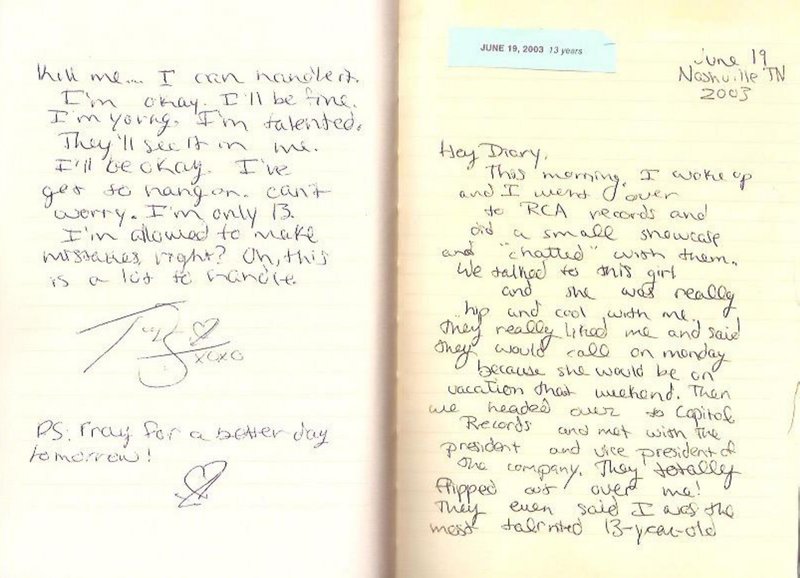 kill me... I can handle it.
I'm okay. I'll be fine.
I'm young. I'm talented.
They'll see it in me.
I'll be okay. I've
got to hang on. can't
worry. I'm only 13.
I'm allowed to make
mistakes, right? Oh, this
is a lot to handle.
xoxo
PS. Pray for a better day
tomorrow!
JUNE 19, 2003 13 years
June 19
Nashville TN
2003
Hey Diary,
This morning, I woke up
and I went over
to RCA records and
did a small showcase
and "chatted" with them.
We talked to this girl
and she was really
hip and cool with me.
they really liked me and said
they would call on monday
because she would be on
vacation that weekend. Then
we headed over to Capitol
Records and met with the
president and vice president of
the company. They totally
flipped out over me!
They even said I was the
most talented 13-year-old